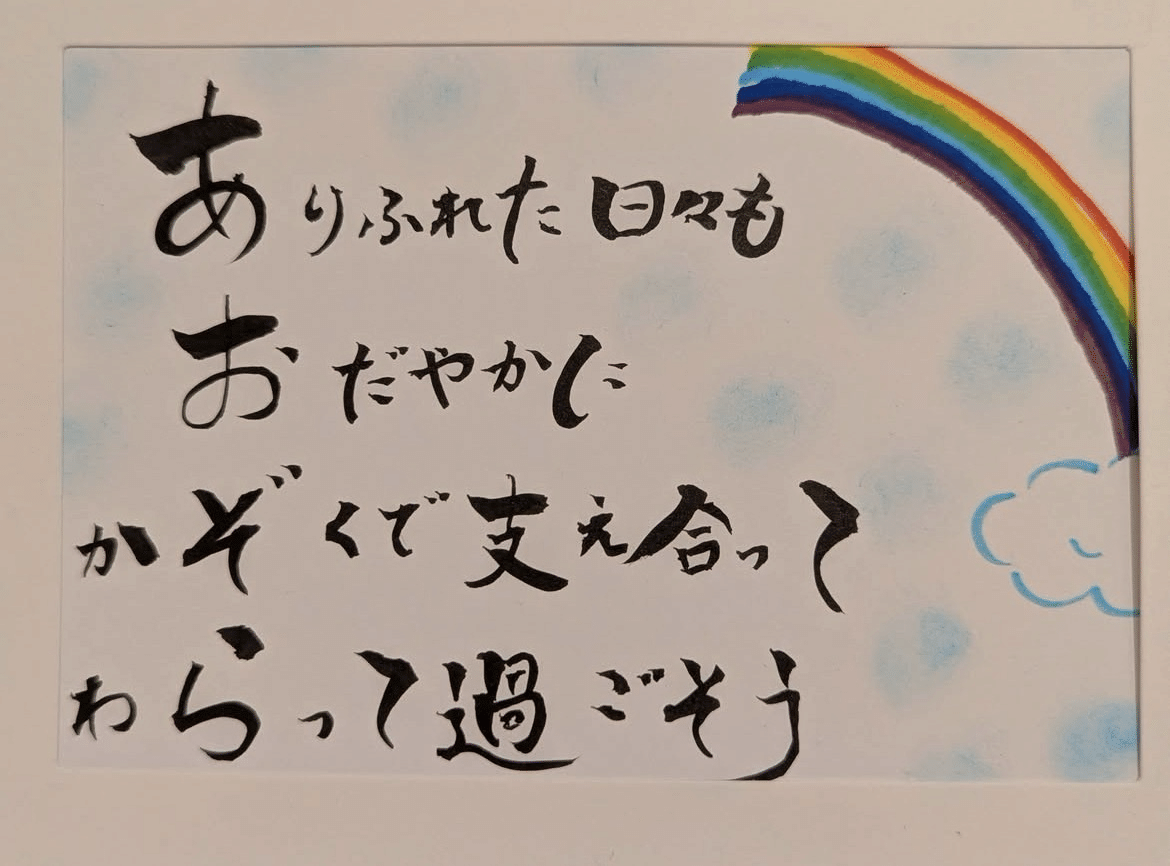 ありふれた日々も
おだやかに
かぞくで支え合って
わらって過ごそう